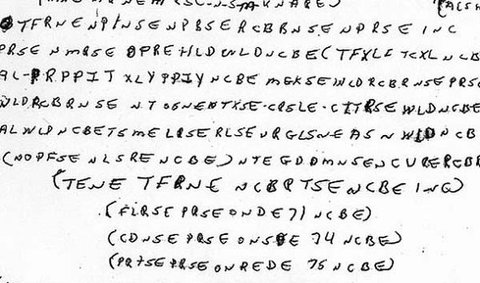 TFRNENPINSENPBSERCBBNSENPRSEINC
PRSENMRSEOPREHLDWLDNCBE(TFXLFTCXLNCB
AL-PRPPITXLYPPIYNCBE MGKSEWLDRCBRNSEPRSE
WLDRCBRNSE NTSGNENTXSE-CRSLE-CITRSEWLDNCBE
ALWLDNCBETSMELRSERLSEURGLSNEASNWLDNCB
(NOPFSENLSRENCBE)NTEGDDMNSENCURERCBR
(TENE TFRNE NCBRTSENCBEINC)
(FLRSE PRSE ONDE 71 NCBE)
(CDNSE PRSE ONSDE 74 NCBE)
(PRTSE PRSE ONREDE 75 NCBE)